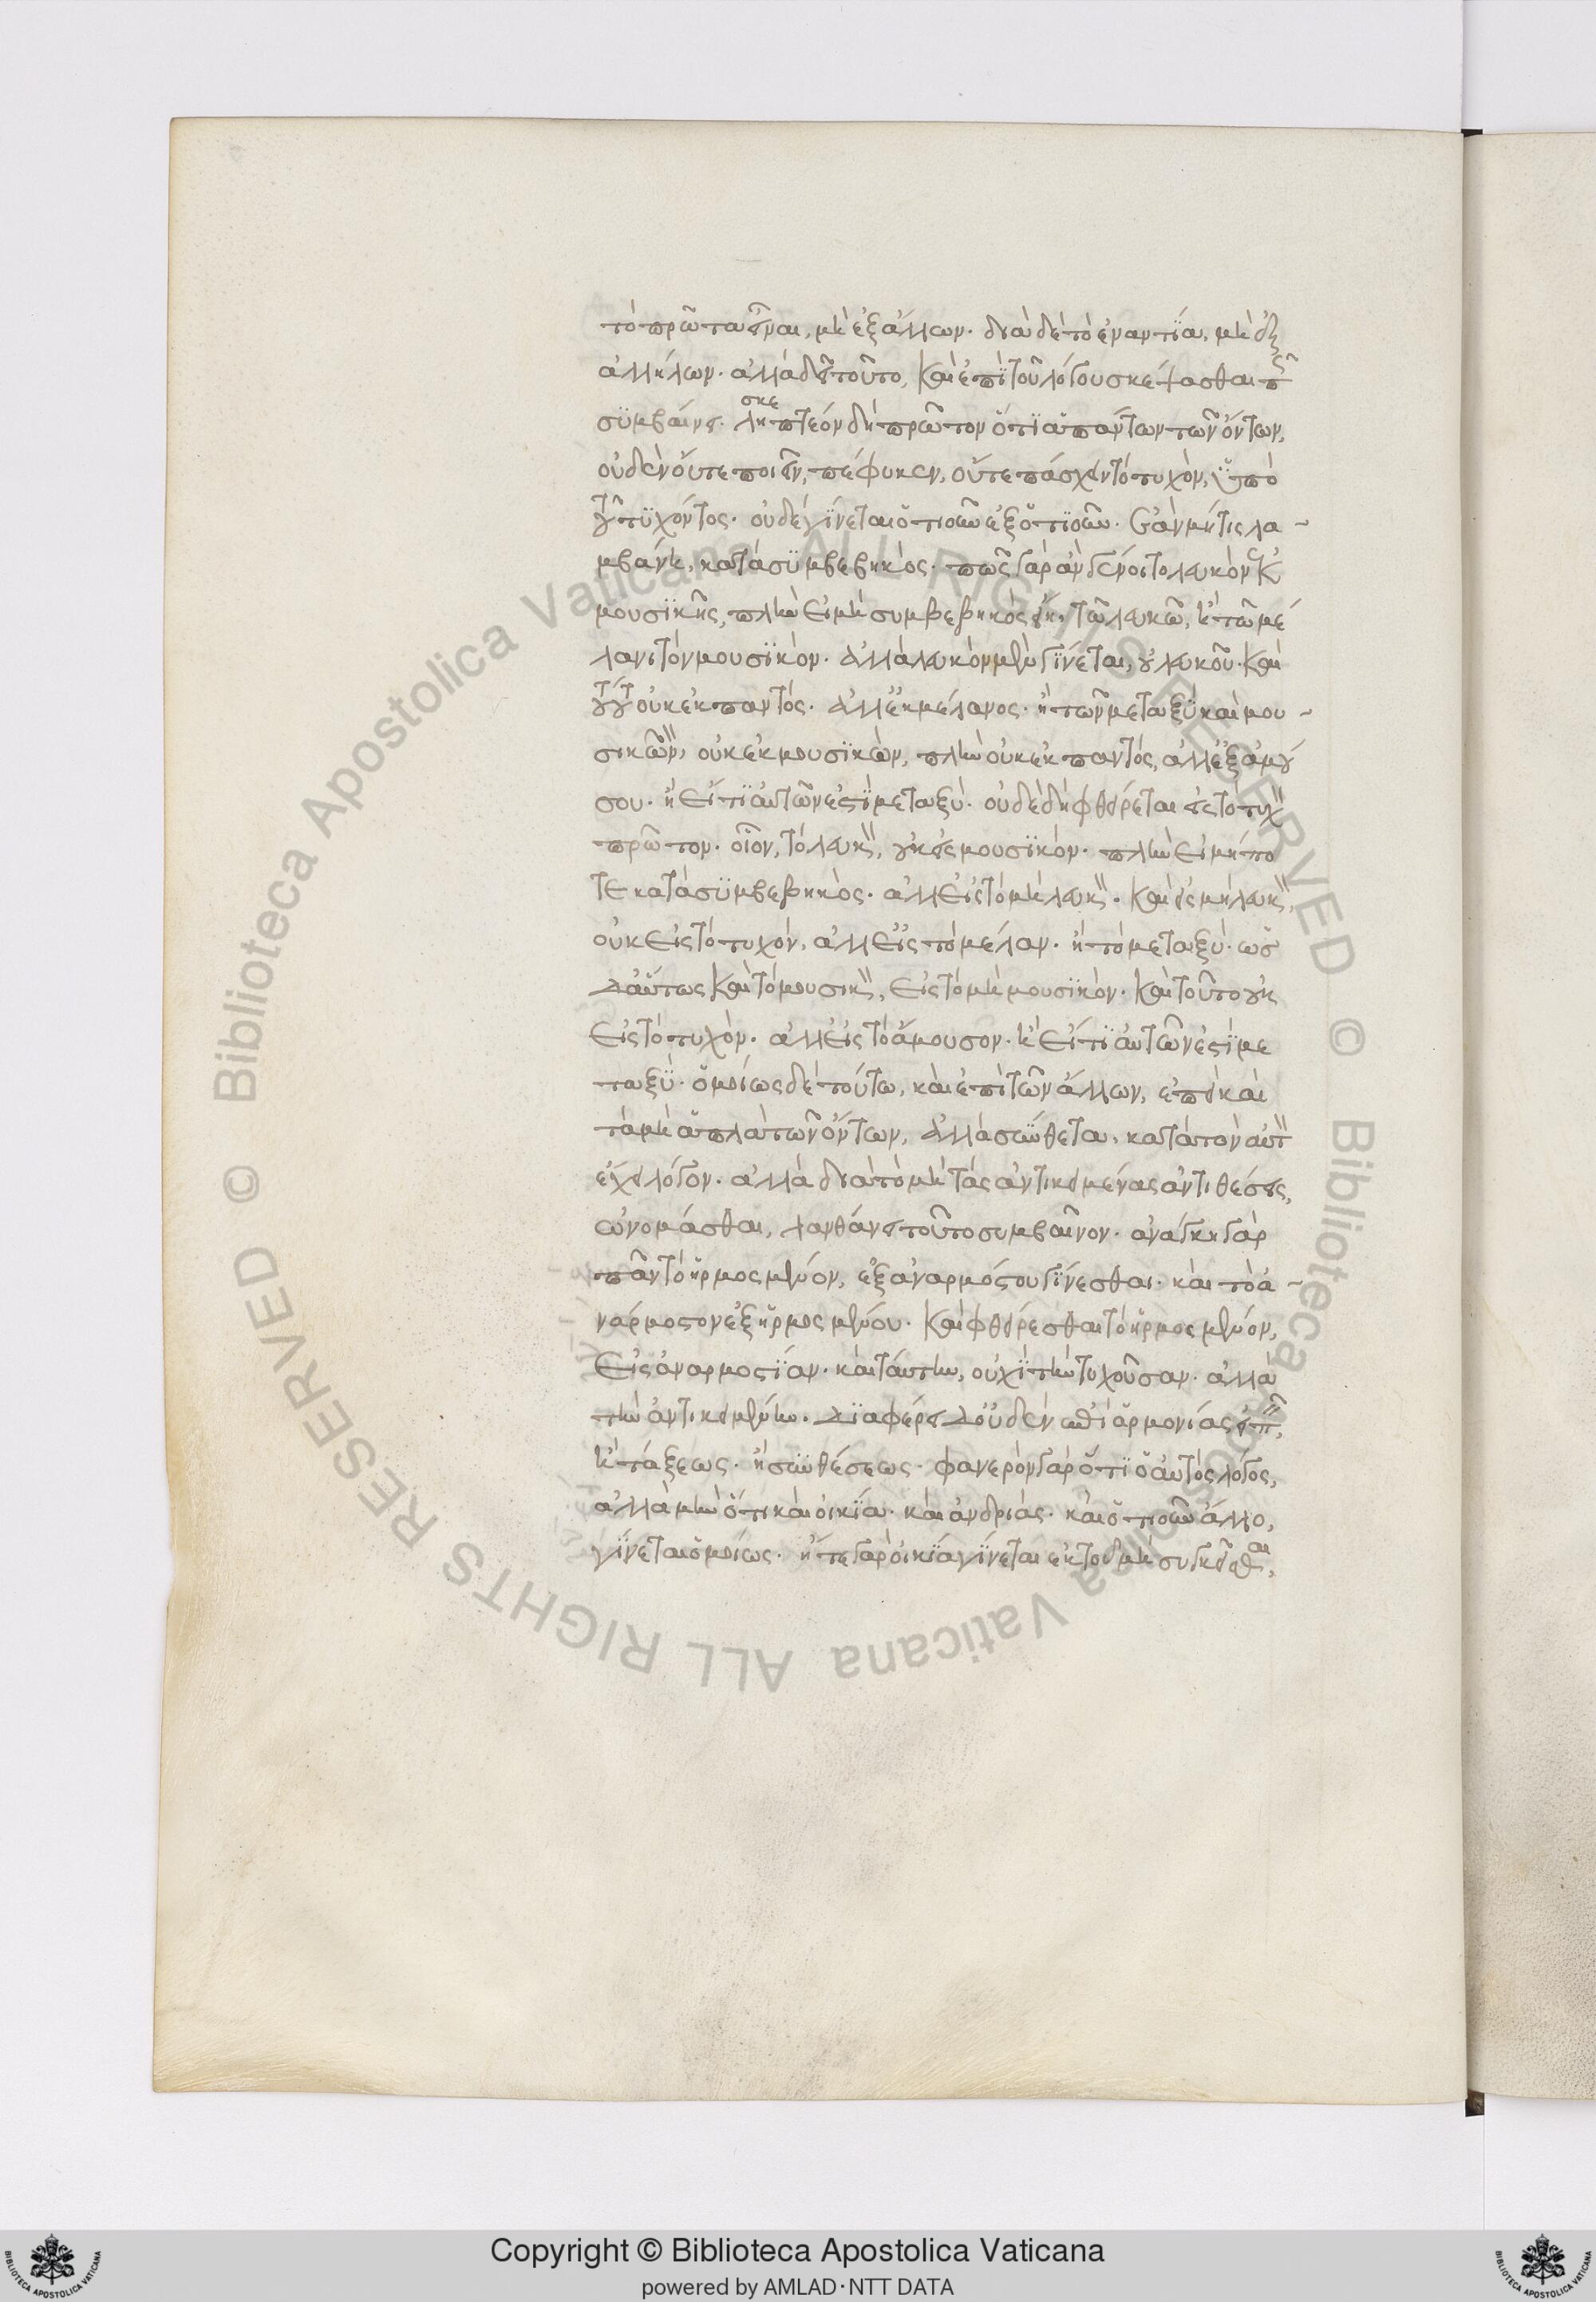 τὸ πρῶτα εἶναι, μὴ ἐξ ἄλλων. διὰ δὲ τὸ ἐναντία, μὴ ἐξ
ἀλλήλων. ἀλλὰ δεῖ τοῦτο, καὶ ἐπὶ τοῦ λόγου σκέψασθαι πῶς
συμβαίνει. ληπτέον δὴ πρῶτον ὅτι ἁπάντων τῶν ὄντων,
σκε
οὐδὲν οὔτε ποιεῖν, πέφυκεν, οὔτε πάσχειν τὸ τυχὸν, ὑπὸ
τοῦ τυχόντος. οὐδὲ γίνεται ὁτιοῦν ἐξ ὁτιοῦν. ἐὰν μή τις λα-
μβάνῃ, κατὰ συμβεβηκός. πῶς γὰρ ἂν γένοιτο λευκὸν ἐκ
μουσικῆς, πλὴν εἰ μὴ συμβεβηκὸς εἴη τῶ λευκῶ, ἢ τῶ μέ
λανι τὸν μουσικόν. ἀλλὰ λευκὸν μὲν γίνεται, οὐ λευκοῦ. καὶ
τούτου οὐκ ἐκ παντός. ἀλλ' ἐκ μέλανος. ἢ τῶν μεταξύ καὶ μου-
σικὸν, οὐκ ἐκ μουσικῶν, πλὴν οὐκ ἐκ παντός, ἀλλ' ἐξ ἀμού
σου. ἢ εἴ τι αὐτῶν ἐστὶ μεταξύ. οὐδὲ δὴ φθείρεται εἰς τὸ τυχὸν
πρῶτον. οἷον, τὸ λευκὸν, οὐκ εἰς μουσικόν. πλὴν εἰ μή πο
τε κατὰ συμβεβηκός. ἀλλ' εἰς τὸ μὴ λευκόν. καὶ εἰς μὴ λευκὸν,
οὐκ εἰς τὸ τυχόν, ἀλλ' εἰς τὸ μέλαν. ἢ τὸ μεταξύ. ὡσ
δ' αὕτως καὶ τὸ μουσικὸν, εἰς τὸ μὴ μουσικόν. καὶ τοῦτο οὐκ
εἰς τὸ τυχόν. ἀλλ' εἰς τὸ ἄμουσον. ἢ εἴ τι αὐτῶν ἐστὶ με
ταξύ. ὁμοίως δὲ τούτω, καὶ ἐπὶ τῶν ἄλλων, ἐπεὶ καὶ
τὰ μὴ ἁπλᾶ τῶν ὄντων, ἀλλὰ σύνθετα, κατὰ τὸν αὐτὸν
ἔχει λόγον. ἀλλὰ διὰ τὸ μὴ τὰς ἀντικειμένας ἀντιθέσεις,
ὠνομάσθαι, λανθάνει τοῦτο συμβαῖνον. ἀνάγκη γὰρ
πᾶν τὸ ἡρμοσμένον, ἐξ ἀναρμόστου γίνεσθαι. καὶ τὸ ἀ-
νάρμοστον ἐξ ἡρμοσμένου. καὶ φθείρεσθαι τὸ ἡρμοσμένον,
εἰς ἀναρμοστίαν. καὶ ταύτην, οὐχὶ τὴν τυχοῦσαν. ἀλλὰ
τὴν ἀντικειμένην. διαφέρει δ' οὐδὲν ἐπὶ ἁρμονίας εἰπεῖν,
ἢ τάξεως. ἢ συνθέσεως. φανερὸν γὰρ ὅτι ὁ αὐτὸς λόγος,
ἀλλὰ μὴν ὅτι καὶ οἰκία. καὶ ἀνδριάς. καὶ ὁτιοῦν ἄλλο,
γίνεται ὁμοίως. ἥτε γὰρ οἰκία γίνεται ἐκ τοῦ μὴ συγκεῖσθαι,
Copyright © Biblioteca Apostolica Vaticana
powered by AMLAD·NTT DATA
© Biblioteca Apostolica Vaticana ALL RIGHTS RESERVED
© Biblioteca Apostolica Vaticana ALL RIGHTS RESERVED
BIBLIOTECA APOSTOLICA VATICANA
BIBLIOTECA APOSTOLICA VATICANA